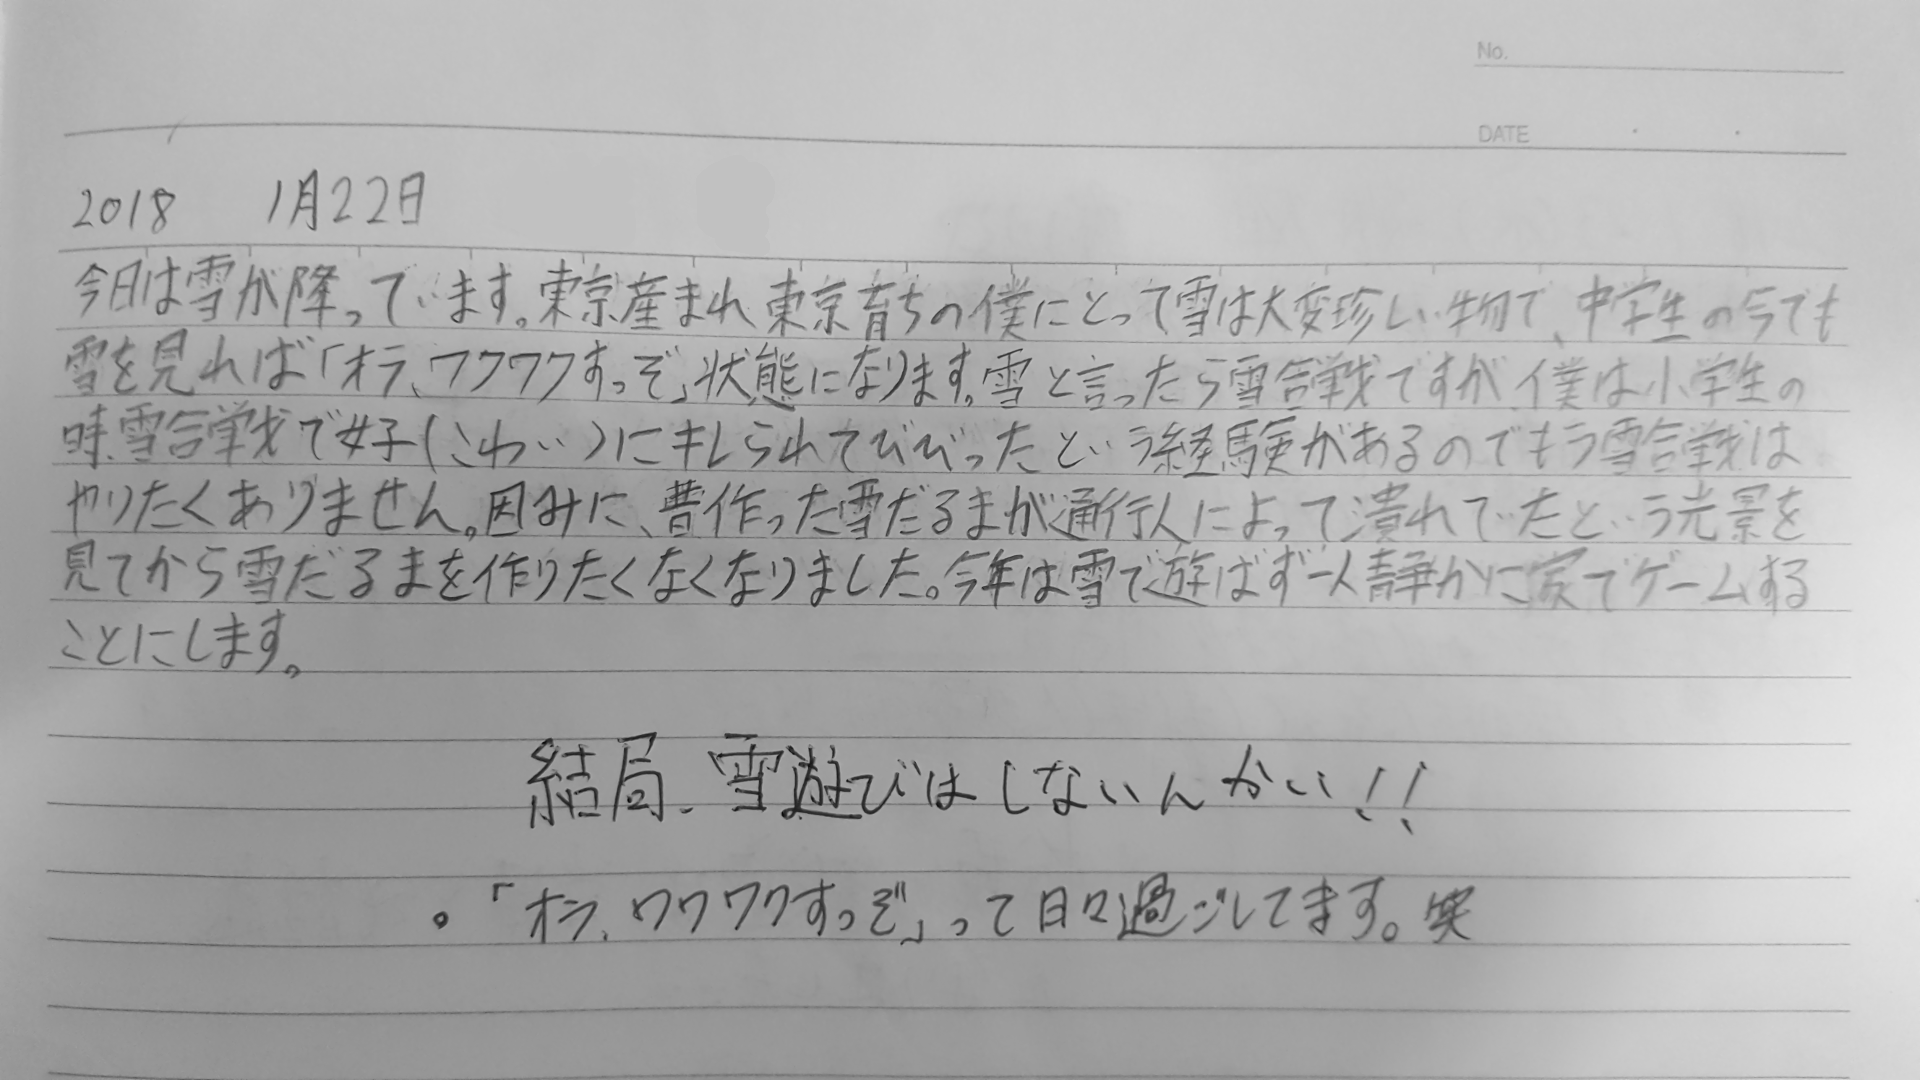 No.
DATE
2018 1月22日
今日は雪が降っています。東京産まれ東京育ちの僕にとって雪は大変珍しい物で、中学生の今でも
雪を見れば「オラ、ワクワクすっぞ」状態になります。雪と言ったら雪合戦ですが、僕は小学生の
時、雪合戦で女子(こわい)にキレられてびびったという経験があるのでもう雪合戦は
やりたくありません。因みに、昔作った雪だるまが通行人によって潰れていたという光景を
見てから雪だるまを作りたくなくなりました。今年は雪で遊ばず一人静かに家でゲームする
ことにします。
結局、雪遊びはしないんかい!!
。「オラ、ワクワクすっぞ」って日々過ごしてます。笑